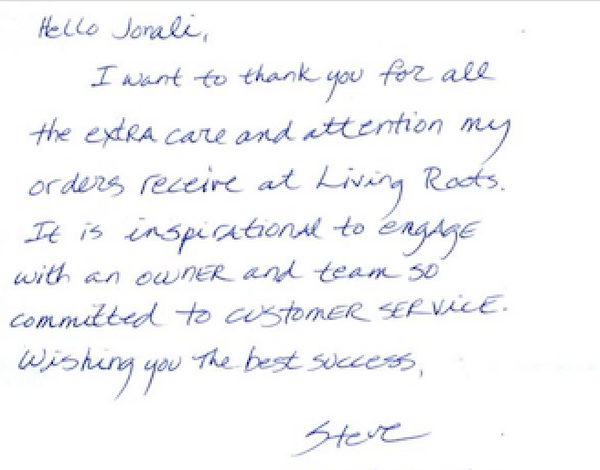 Hello Jonali,
I want to thank you for all
the extra care and attention my
orders receive at Living Roots.
It is inspirational to engage
with an owner and team so
committed to customer service.
Wishing you the best success,
Steve